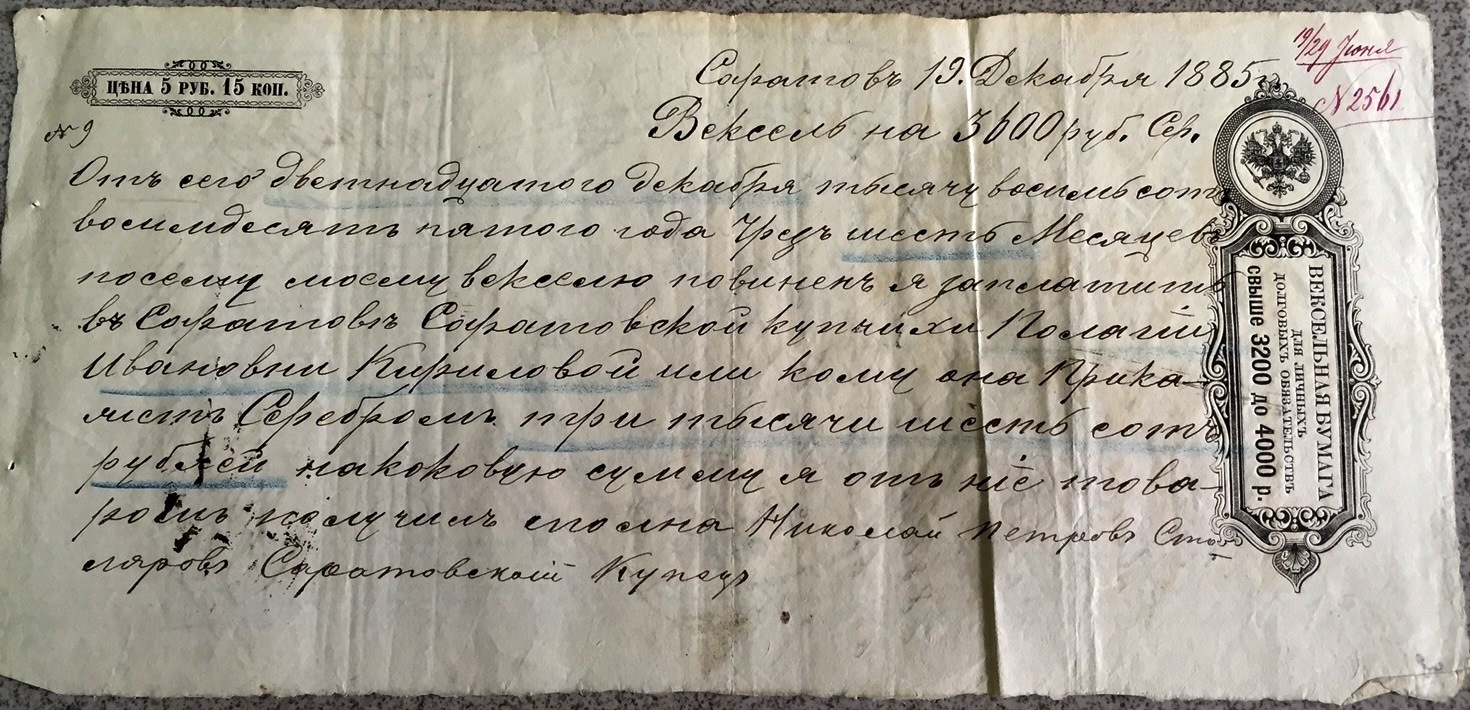 ЦѢНА 5 РУБ. 15 КОП.
19/29 Июня
N 2561
Саратовъ 19. Декабря 1885 г.
N 9
Вексель на 3600 руб. Сер.
Отъ сего двѣтнадцатого декабря тысячу восимьсотъ
восимдесятъ пятого года Чрезъ шесть Месяцевъ
посему моему векселю повиненъ я заплатить
въ Саратовѣ Саратовской купчихи Полагии
Ивановни Кириловой или кому она Прика-
жетъ Серебромъ три тысячи шесть сотъ
рублей накоковую сумму я отъ неіе това-
ромъ получилъ сполна Николай Петровъ Сто-
ляровъ Саратовский Купецъ
ВЕКСЕЛЬНАЯ БУМАГА
ДЛЯ ЛИЧНЫХЪ
ДОЛГОВЫХЪ ОБЯЗАТЕЛЬСТВЪ
СВЫШЕ 3200 ДО 4000 Р.